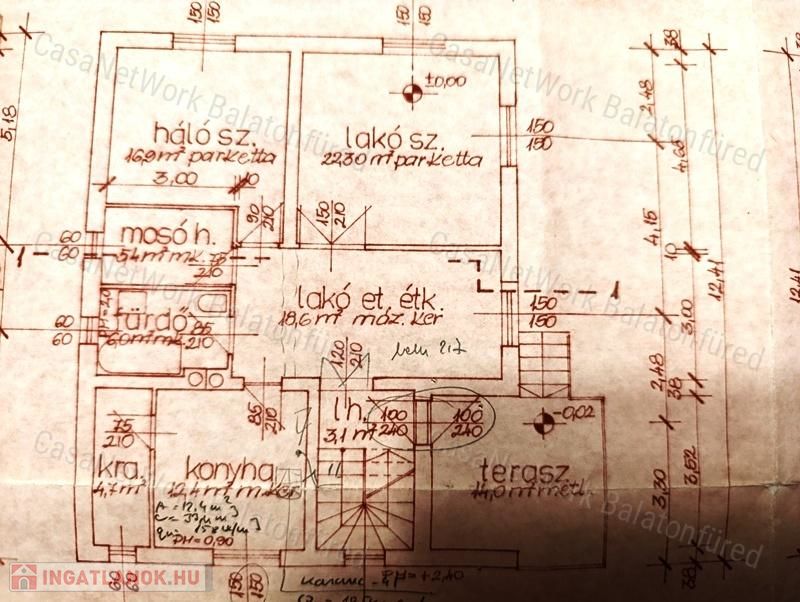 150
150
150
150
CasaNetWork Balatonfüred
CasaNetWork Balatonfüred
38
±0,00
2,48
5,18
háló sz.
16,9 m² parketta
3,00
10
lakó sz.
22,30 m² parketta
150
150
4,66
4,15
12,41
12,41
mosó h.
5,4 m² mk.
75
210
90
210
150
210
60
60
1
1
10
CasaNetWork Balatonfüred
CasaNetWork Balatonfüred
lakó et. étk.
18,6 m² moz. ker
150
150
3,00
fürdő
6,0 m² mk.
85
210
60
60
120
210
2,48
38
75
210
85
210
l'h.
3,1 m²
100
240
100
240
-0,02
kra.
4,7 m²
konyha
12,4 m² mk
terasz
14,0 m² metl.
3,30
3,52
CasaNetWork Balatonfüred
CasaNetWork Balatonfüred
A = 12,4 m²
PH=0,90
INGATLANOK.HU
60
60
150
150
PH=+2,40
38